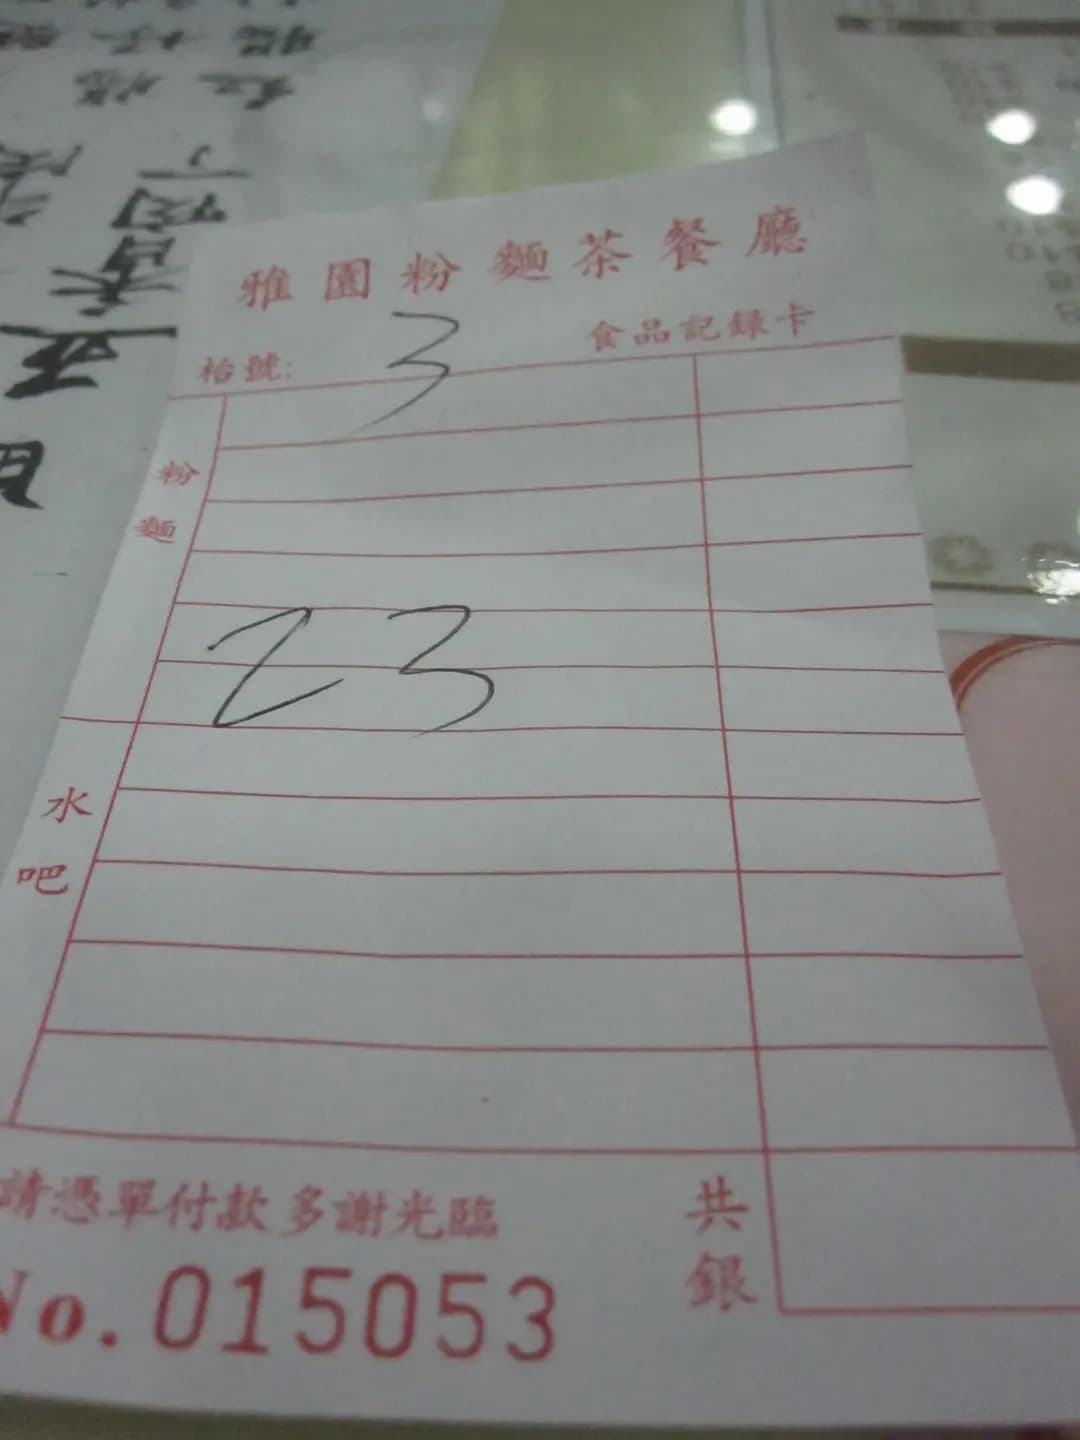 雅園粉麵茶餐廳
食品記錄卡
枱號: 3
粉麵
23
水吧
請憑單付款多謝光臨
共銀
No. 015053